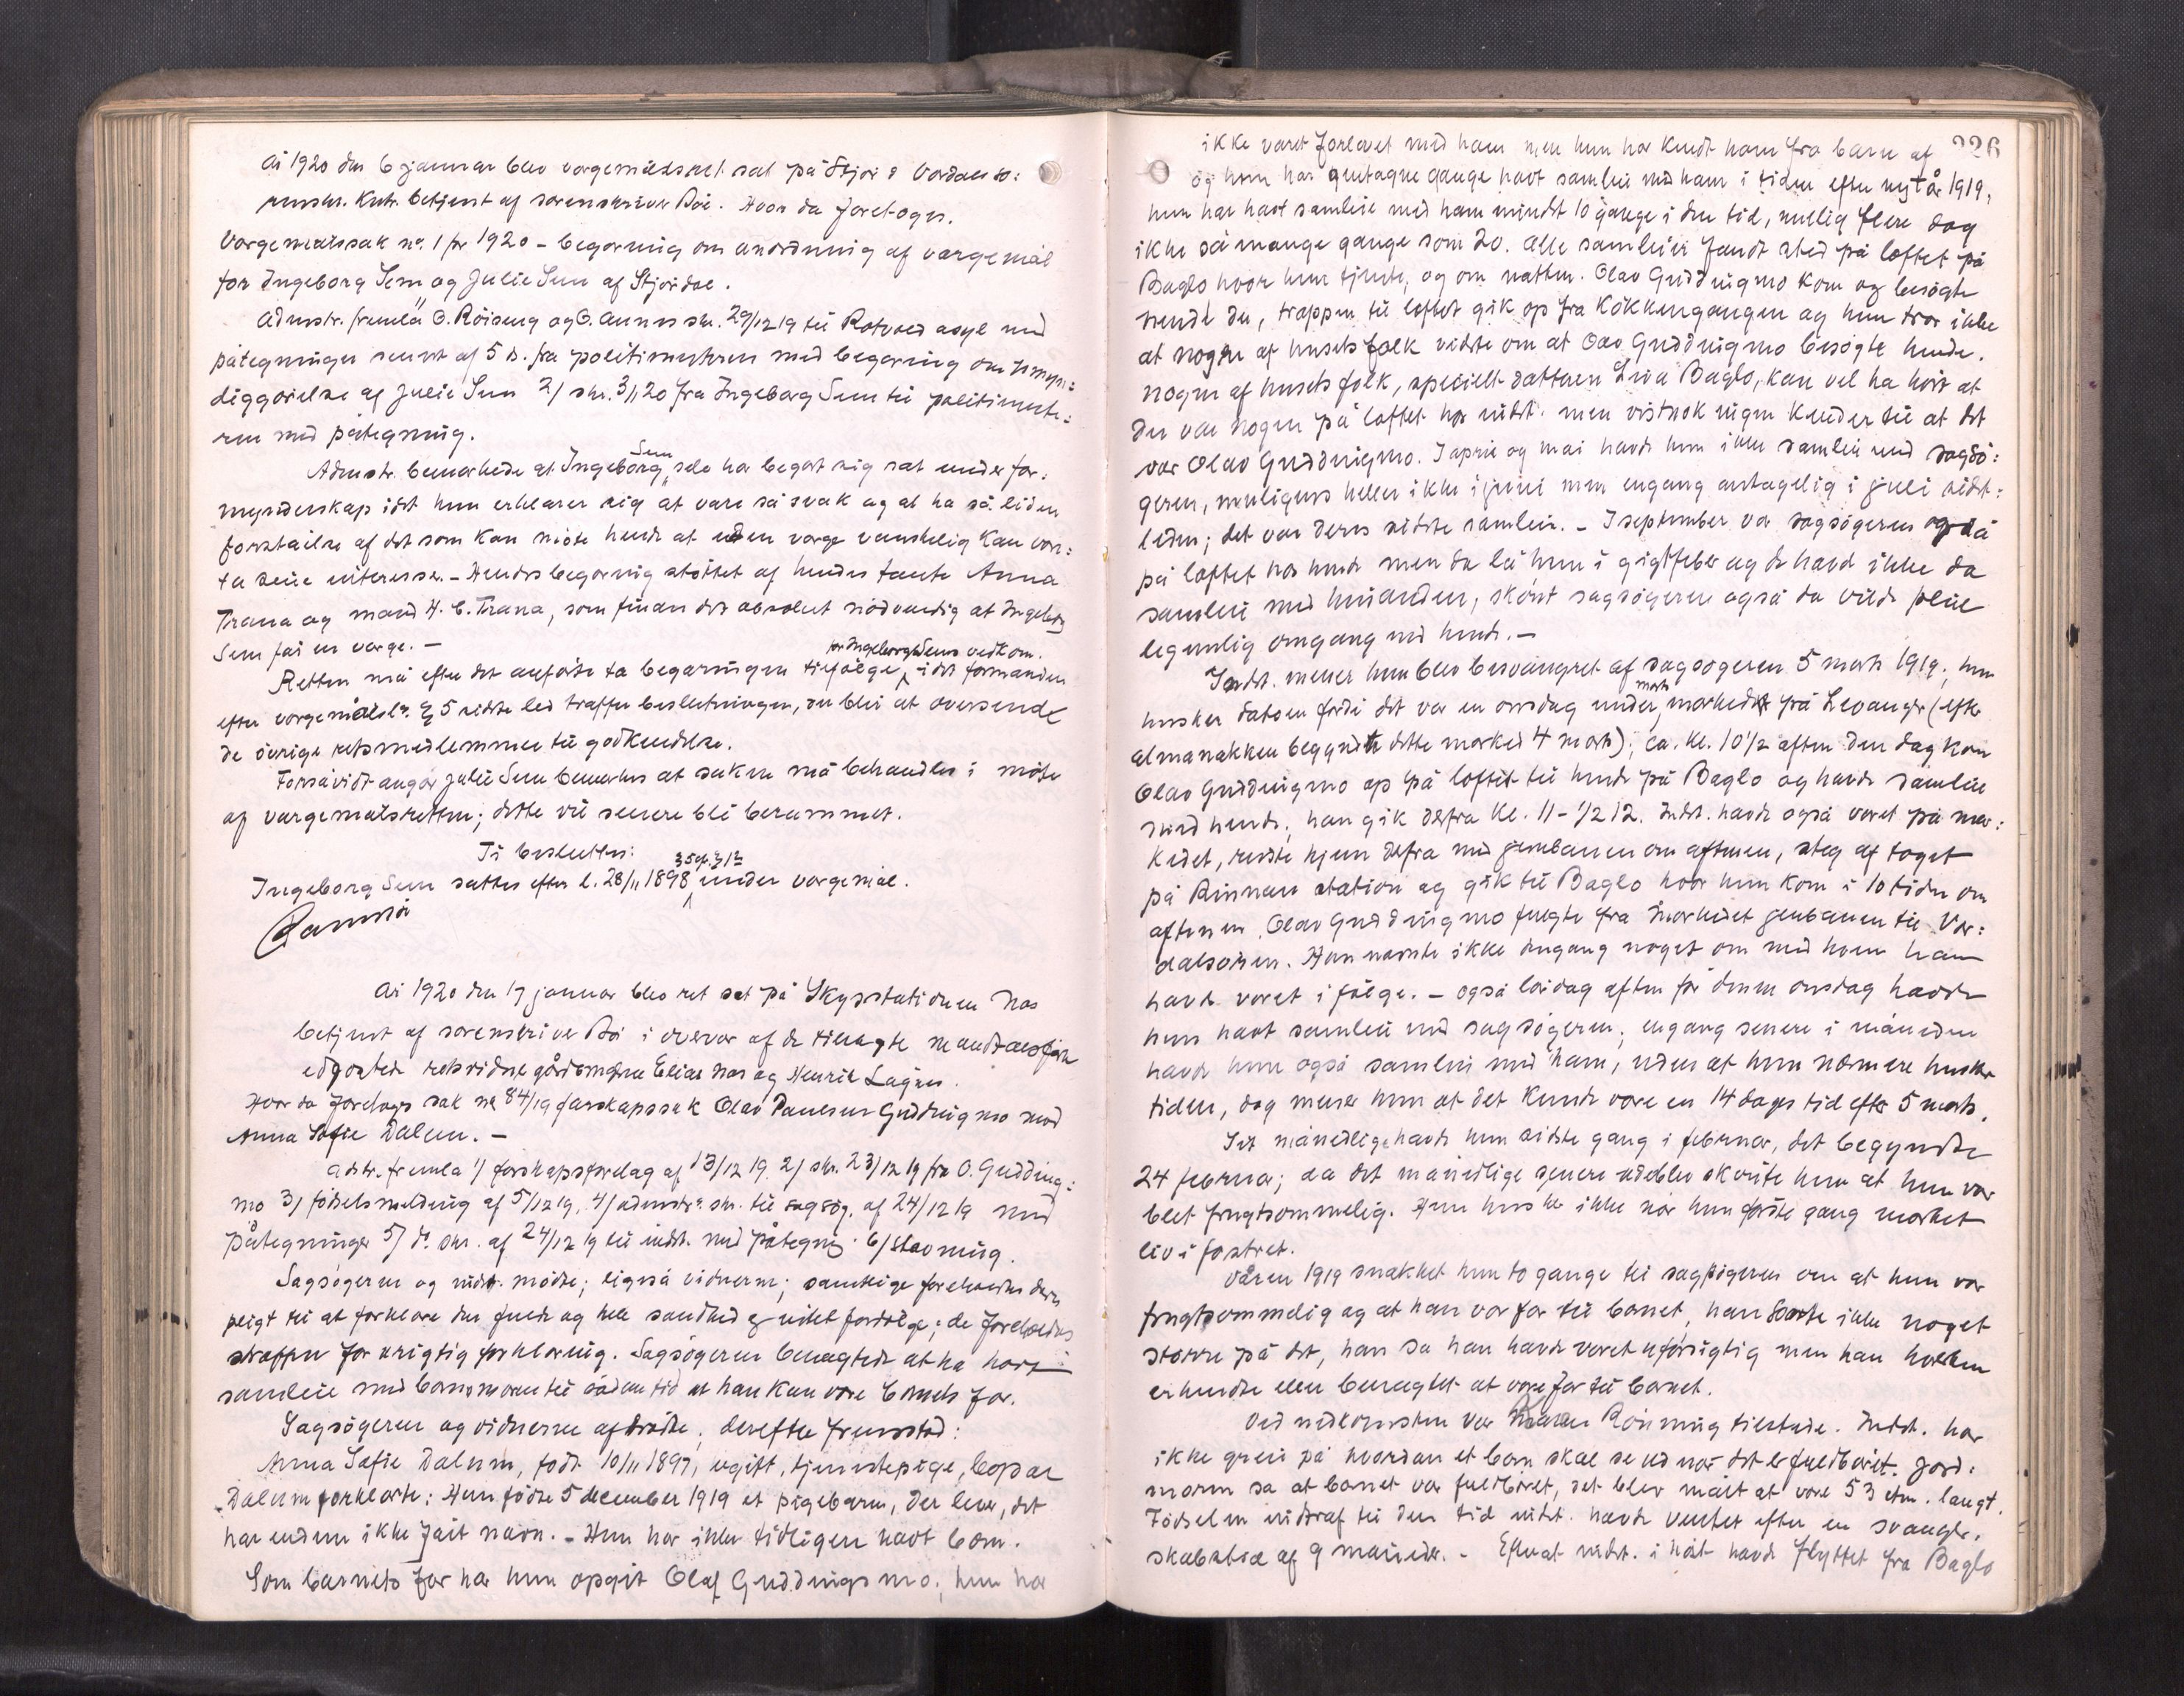 År 1920 den 6 januar blev vergemålsret sat på Stjør & Værdal so:
renskr. Kntr. betjent af sorenskriver Röe. Hvor da foretoges.
Vergemålssak no. 1 for 1920 – begæring om anordning af vergemål
for Ingeborg Sem og Julie Sem af Stjørdal.
Admstr. fremla 1/ O. Röiseng og O. Aunes skr. 29/12 19 til Rotvold asyl med
påtegninger senest af 5 ds. fra politimesteren med begæring om umyn:
diggjørelse af Julie Sem 2/ skr. 3/1 20 fra Ingeborg Sem til politimeste:
ren med påtegning.
Admstr. bemerkede at Ingeborg Sem selv har begært sig sat under for:
mynderskap idet hun erklærer sig at være så svak og at ha så liden
forståelse af det som kan møte hende at uden verge vanskelig kan vare:
ta sine interesser. – Hendes begæring støttet af hendes tante Anna
Trana og mand H. C. Trana, som finder det absolut nødvendig at Ingeborg
Sem får en verge. –
Retten må efter det anførte ta begæringen tilfølge for Ingeborg Sems vedkom. idet formanden
efter vergemålsl. § 5 sidste led træffer beslutningen, der blir at oversende
de øvrige retsmedlemmer til godkjendelse.
Forsåvidt angår Julie Sem bemerkes at saken må behandles i møte
af vergemålsretten; dette vil senere bli berammet.
Ti besluttes:
Ingeborg Sem sættes efter l. 28/11 1898 § 5 cfr. § 1 under vergemål.

År 1920 den 17 januar blev ret sat på Skysstationen hos
betjent af sorenskriver Röe i overvær af de tilsagte mandtalsførte
edfæstede retsvidner gårdmænd Elias Nes og Henrik Lagnes.
Hvor da foretoges sak no 84/19 farskapssak Olav Paulsen Guddingsmo mod
Anna Sofie Dalum. –
Adstr. fremla 1/ farskapsforelag af 13/12 19 2/ skr. 23/12 19 fra O. Gudding:
mo 3/ fødselsmelding af 5/12 19, 4/ admstrs. skr. til sagsøg. af 24/12 19 med
påtegninger 5/ ds. skr. af 24/12 19 til indst. med påtegng. 6/ stævning.
Sagsøgeren og indst. mødte; ligeså vidnerne; samtlige foreholdtes deres
pligt til at forklare den fulde og hele sandhed og intet fordølge; de foreholdtes
straffen for urigtig forklaring. Sagsøgeren benægtede at ha havt
samleie med barnemoren til sådan tid at han kan være barnets far.
Sagsøgeren og vidnerne aftrådte; derefter fremstod:
Anna Sofie Dalum, født 10/11 1897, ugift, tjenestepige, bopæl
Dalum forklarte: Hun fødte 5 december 1919 et pigebarn, der lever, det
har endnu ikke fåit navn. – Hun har ikke tidligere havt barn.
Som barnets far har hun opgit Olaf Guddingsmo; hun har
226
ikke været forlovet med ham men hun har kjendt ham fra barn af
og hun har gjentagne gange havt samleie med ham i tiden efter nytår 1919,
hun har havt samleie med ham mindst 10 gange i den tid, mulig flere dog
ikke så mange gange som 20. Alle samleier fandt sted på loftet på
Baglo hvor hun tjente, og om natten. Olav Guddingmo kom og besøgte
hende der, trappen til loftet gik op fra kökkengangen og hun tror ikke
at nogen af husets folk vidste om at Olav Guddingmo besøgte hende.
Nogen af husets folk, specielt datteren Liva Baglo, kan vel ha hørt at
der var nogen på loftet hos indst. men vistnok ingen kjender til at det
var Olav Guddingmo. I april og mai havde hun ikke samleie med sagsö:
geren, muligens heller ikke i juni men engang antagelig i juli sidst:
leden; det var deres sidste samleie. – I september var sagsøgeren også
på loftet hos hende men da lå hun i gigtfeber og de havde ikke da
samleie med hinanden, skönt sagsøgeren også da vilde pleie
legemlig omgang med hende. –
Indst. mener hun blev besvangret af sagsøgeren 5 marts 1919; hun
husker datoen fordi det var en onsdag under marts markedet på Levanger (efter
almanakken begyndte dette marked 4 marts); ca. kl. 10 1/2 aften den dag kom
Olav Guddingmo op på loftet til hende på Baglo og havde samleie
med hende; han gik derfra kl. 11 – 1/2 12. Indst. havde også været på mar:
kedet, reiste hjem derfra med jernbanen om aftenen, steg af toget
på Rinnan station og gik til Baglo hvor hun kom i 10 tiden om
aftenen. Olav Guddingmo fulgte fra markedet jernbanen til Vær:
dalsøren. Han nævnte ikke dengang noget om med hvem han
havde været i følge. – Også lördag aften før denne onsdag havde
hun havt samleie med sagsøgeren; engang senere i måneden
havde hun også samleie med ham, uden at hun nærmere husker
tiden, dog mener hun at det kunde være en 14 dages tid efter 5 marts.
Det månedlige havde hun sidste gang i februar, det begyndte
24 februar; da det månedlige senere udeblev skønte hun at hun var
blet frugtsommelig. Hun husker ikke når hun første gang merket
liv i fostret.
Våren 1919 snakket hun to gange til sagsøgeren om at hun var
frugtsommelig og at han var far til barnet, han svarte ikke noget
større på det, han sa han havde været uforsigtig men han hverken
erkjendte eller benægtet at være far til barnet.
Ved nedkomsten var Maren Röining tilstede. Indst. har
ikke greie på hvordan et barn skal se ud når det er fuldbåret. Jord:
moren sa at barnet var fuldbåret, det blev målt at være 53 ctm. langt.
Fødselen indtraf til den tid indst. havde ventet efter en svanger:
skabstid af 9 måneder. – Efterat indst. i høst havde flyttet fra Baglo